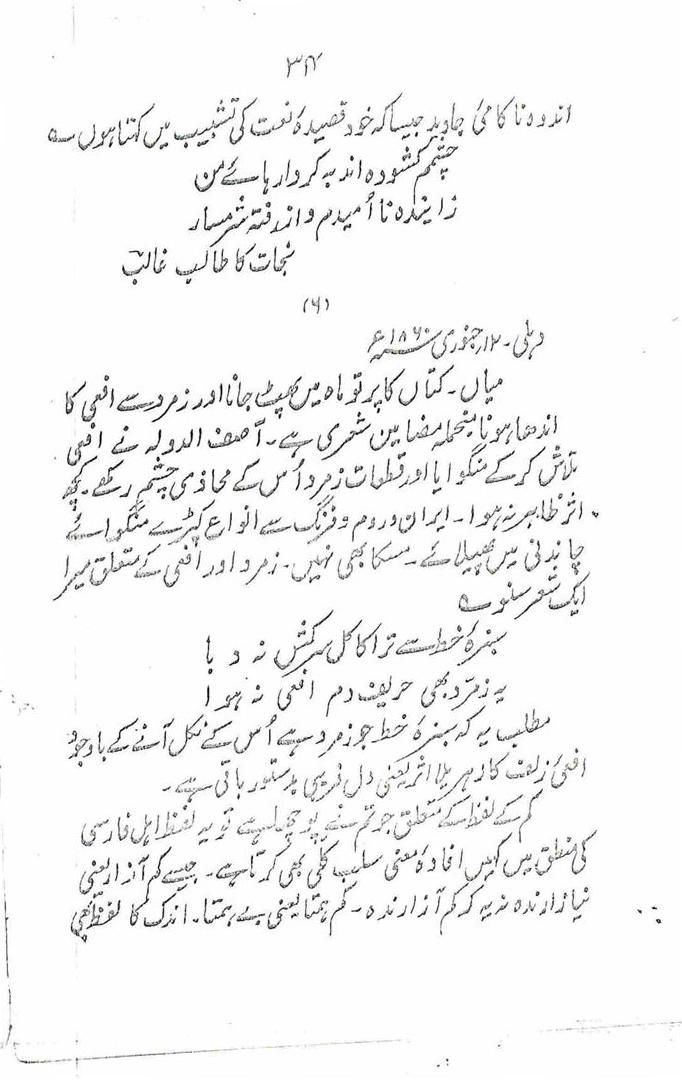 ۳۴
اندوہ ناکامیٔ جاوید جیسا کہ خود قصیدۂ نعت کی تشبیب میں کہتا ہوں ؎
چشمم کشودہ اند بہ کردار ہائے من
ز ایندہ نا اُمیدم و از رفتہ شرمسار
نجات کا طالب غالبؔ
(۶)
دہلی۔ ۱۲؍ جنوری ۱۸۶۰ء
میاں۔ کتاں کا پرتوِ ماہ میں پھٹ جانا اور زمرد سے افعی کا
اندھا ہونا منجملہ مضامین شعری ہے۔ آصف الدولہ نے افعی
تلاش کر کے منگوایا اور قطعات زمرد اُس کے محاذی چشم رکھے۔ کچھ
اثر ظاہر نہ ہوا۔ ایران و روم و فرنگ سے انواع کپڑے منگوائے
چاندنی میں پھیلائے۔ مسکا بھی نہیں۔ زمرد اور افعی کے متعلق میرا
ایک شعر سنو ؎
سبزۂ خط سے ترا کاکل سرکش نہ دبا
یہ زمرد بھی حریف دم افعی نہ ہوا
مطلب یہ کہ سبزۂ خط جو زمرد ہے اُس کے نکل آنے کے باوجود
افعیٔ زلف کا زہریلا اثر یعنی دل فریبی بدستور باقی ہے۔
کم کے لفظ کے متعلق جو تم نے پوچھا ہے تو یہ لفظ اہل فارسی
کی منطق میں کہیں افادۂ معنی سلب کلی بھی کرتا ہے۔ جیسے کم آزار یعنی
نیازارندہ نہ یہ کہ کم آزارندہ۔ کم ہمتا یعنی بے ہمتا۔ اندک کا لفظ بھی